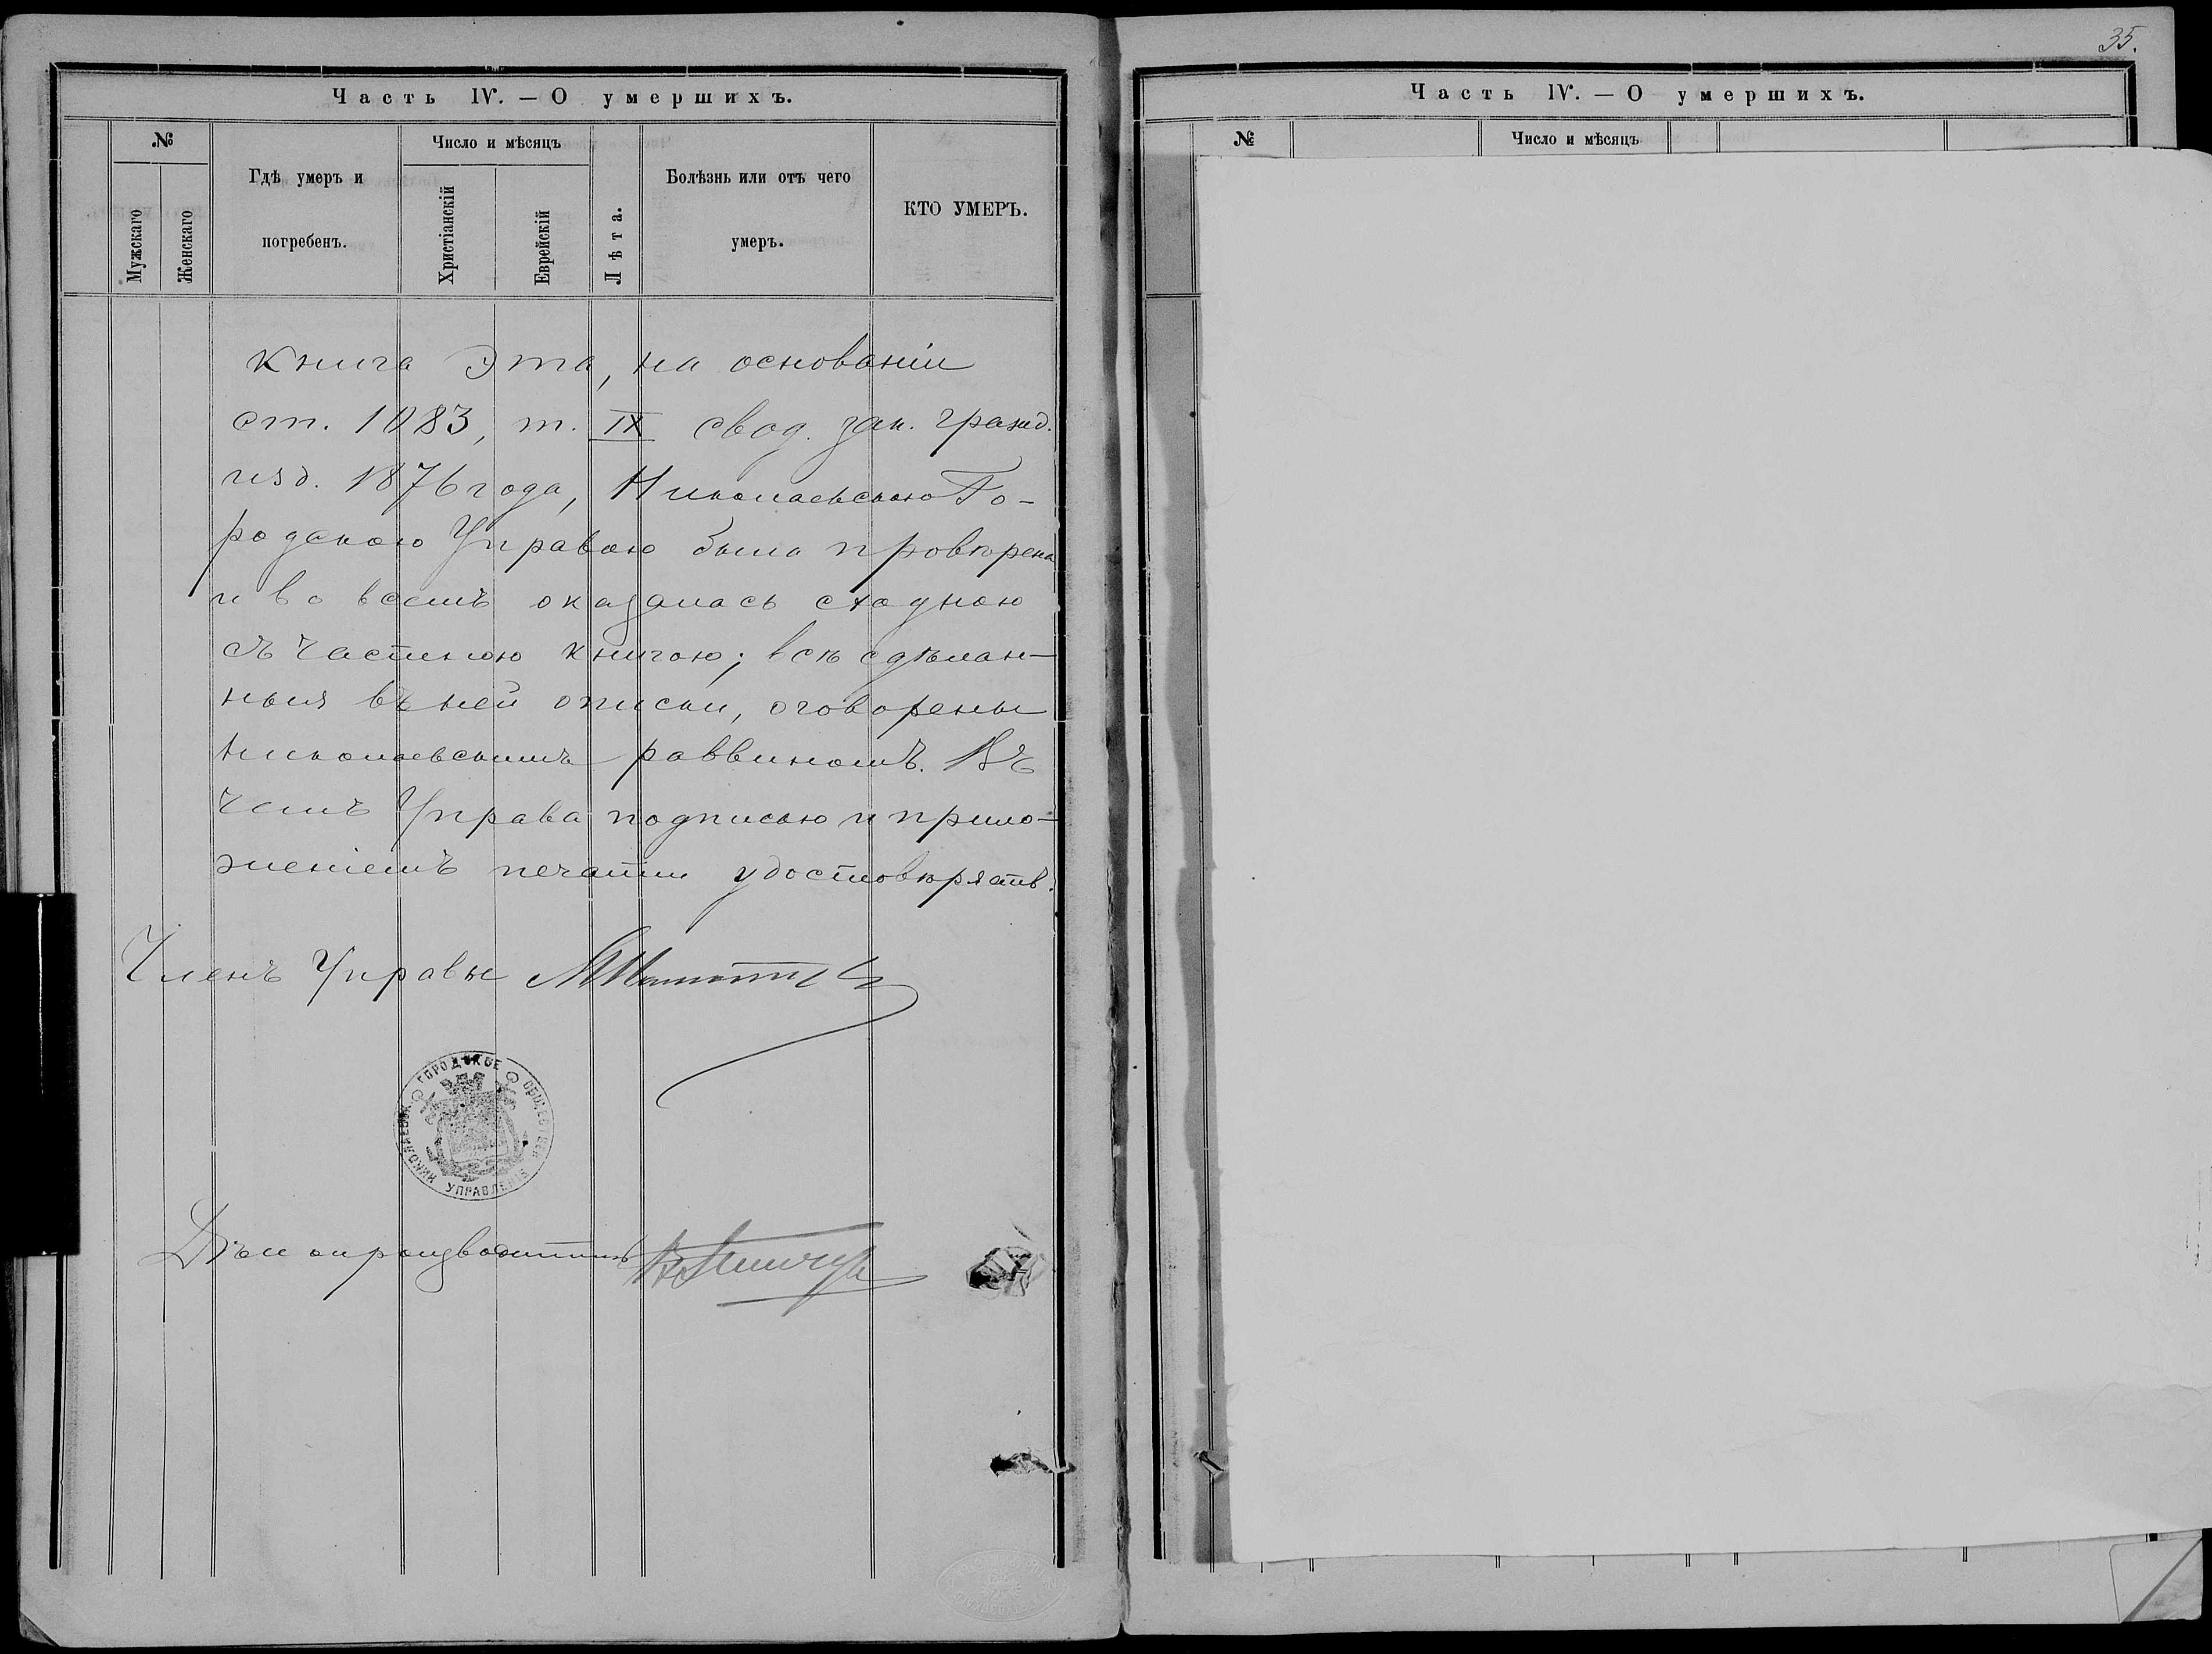 Часть IV. — О умершихъ.
№
Мужскаго
Женскаго
Гдѣ умеръ и
погребенъ.
Число и мѣсяцъ
Христіанскій
Еврейскій
Лѣта.
Болѣзнь или отъ чего
умеръ.
КТО УМЕРЪ.
Книга эта, на основаніи
ст. 1083, т. IX свод. зак. гражд.
изд. 1876 года, Николаевскою Го-
родскою Управою была провѣрена
и во всемъ оказалась сходною
съ частною книгою; всѣ сдѣлан-
ныя въ ней описки, оговорены
Николаевскимъ раввиномъ. Въ
чемъ Управа подписью и прило-
женіемъ печати удостовѣряетъ.
Членъ Управы
НИКОЛАЕВСК. ГОРОДСКОЕ ОБЩЕСТВЕН. УПРАВЛЕНІЕ
Дѣлопроизводитель
35.
Часть IV. — О умершихъ.
№
Число и мѣсяцъ